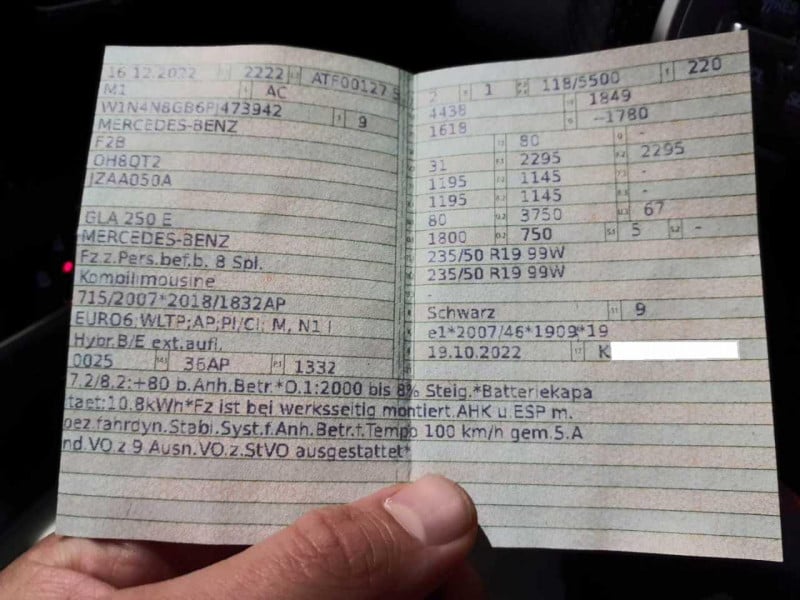 16.12.2022 2222 ATF00127 5
M1 AC
W1N4N8GB6PJ473942 9
MERCEDES-BENZ
F2B
OH8QT2
JZAA050A
GLA 250 E
MERCEDES-BENZ
Fz.z.Pers.bef.b. 8 Spl.
Kombilimousine
715/2007*2018/1832AP
EURO6;WLTP;AP;PI/CI; M, N1 I
Hybr.B/E ext.aufl.
0025 36AP 1332
2 1 118/5500 220
4438 1849
1618 -1780
80 -
31 2295 2295
1195 1145 -
1195 1145 -
80 3750 67
1800 750 5 -
235/50 R19 99W
235/50 R19 99W
-
Schwarz 9
e1*2007/46*1909*19
19.10.2022 K
7.2/8.2:+80 b.Anh.Betr.*O.1:2000 bis 8% Steig.*Batteriekapa
taet:10.8kWh*Fz ist bei werksseitig montiert.AHK u.ESP m.
bez.fahrdyn.Stabi.Syst.f.Anh.Betr.f.Tempo 100 km/h gem.5.A
nd.VO.z.9.Ausn.VO.z.StVO ausgestattet*